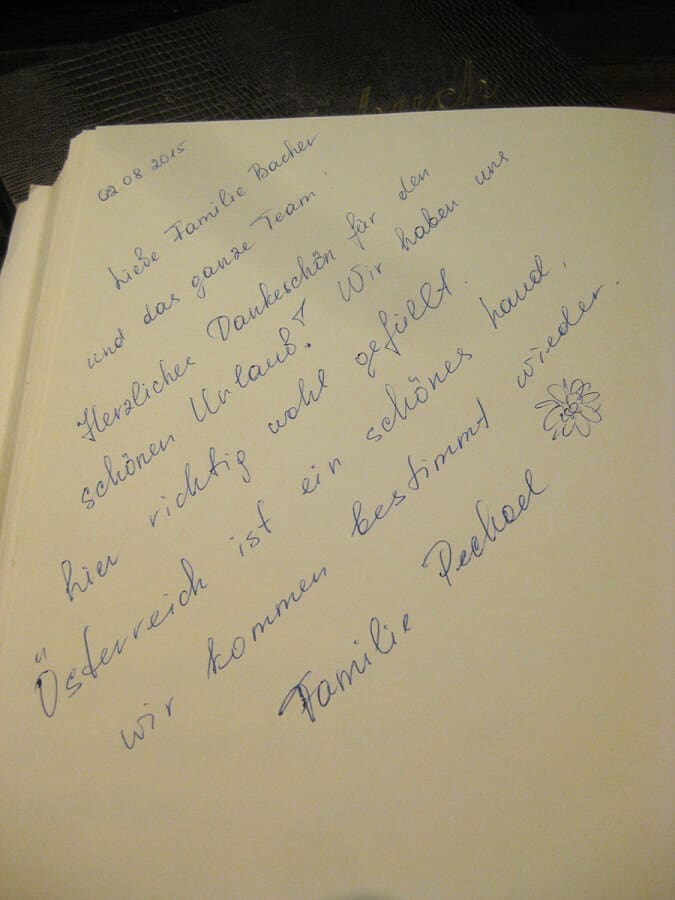 buch
02 08 2015
Liebe Familie Bacher
und das ganze Team!
Herzliches Dankeschön für den
schönen Urlaub! Wir haben uns
hier richtig wohl gefüllt.
Österreich ist ein schönes Land,
wir kommen bestimmt wieder.
Familie